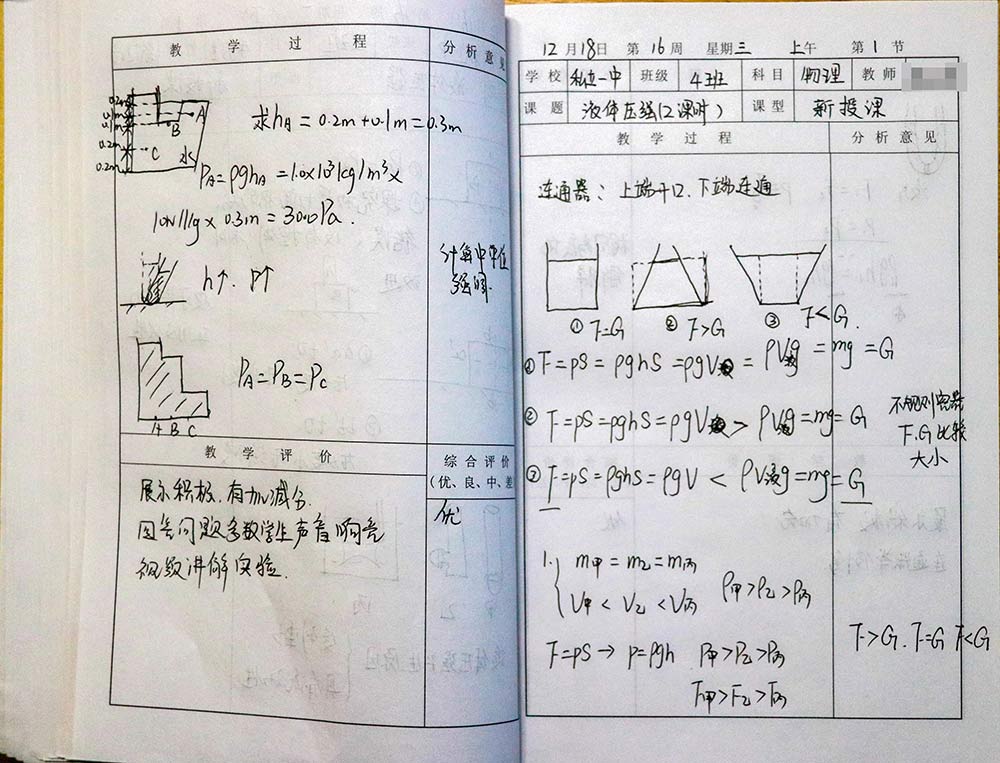 教 学 过 程
分 析 意 见
0.2m
A
0.1m
B
0.2m
C
水
0.2m
求hA = 0.2m+0.1m=0.3m
PA=ρghA=1.0×10³kg/m³×
10N/kg×0.3m=3000Pa.
h↑. P↑
计算中单位
强调.
PA=PB=PC
A B C
教 学 评 价
综 合 评 价
(优、良、中、差
展示积极.有加减分.
回答问题多数学生声音响亮
视频讲解实验.
优
12月18日 第16周 星期三 上午 第1节
学 校 私立一中 班级 4班 科 目 物理 教 师
课 题 液体压强(2课时) 课 型 新授课
教 学 过 程
分 析 意 见
连通器: 上端开口、下端连通
① F=G ② F>G ③ F<G.
①F=pS=ρghS=ρgV液=ρV液g=mg=G
②F=pS=ρghS=ρgV液>ρV液g=mg=G
不规则容器
F.G比较
大小
③F=pS=ρghS=ρgV<ρV液g=mg=G
1. m甲=m乙=m丙
V甲<V乙<V丙
ρ甲>ρ乙>ρ丙
F=pS→p=ρgh P甲>P乙>P丙
F甲>F乙>F丙
F>G.F=G F<G